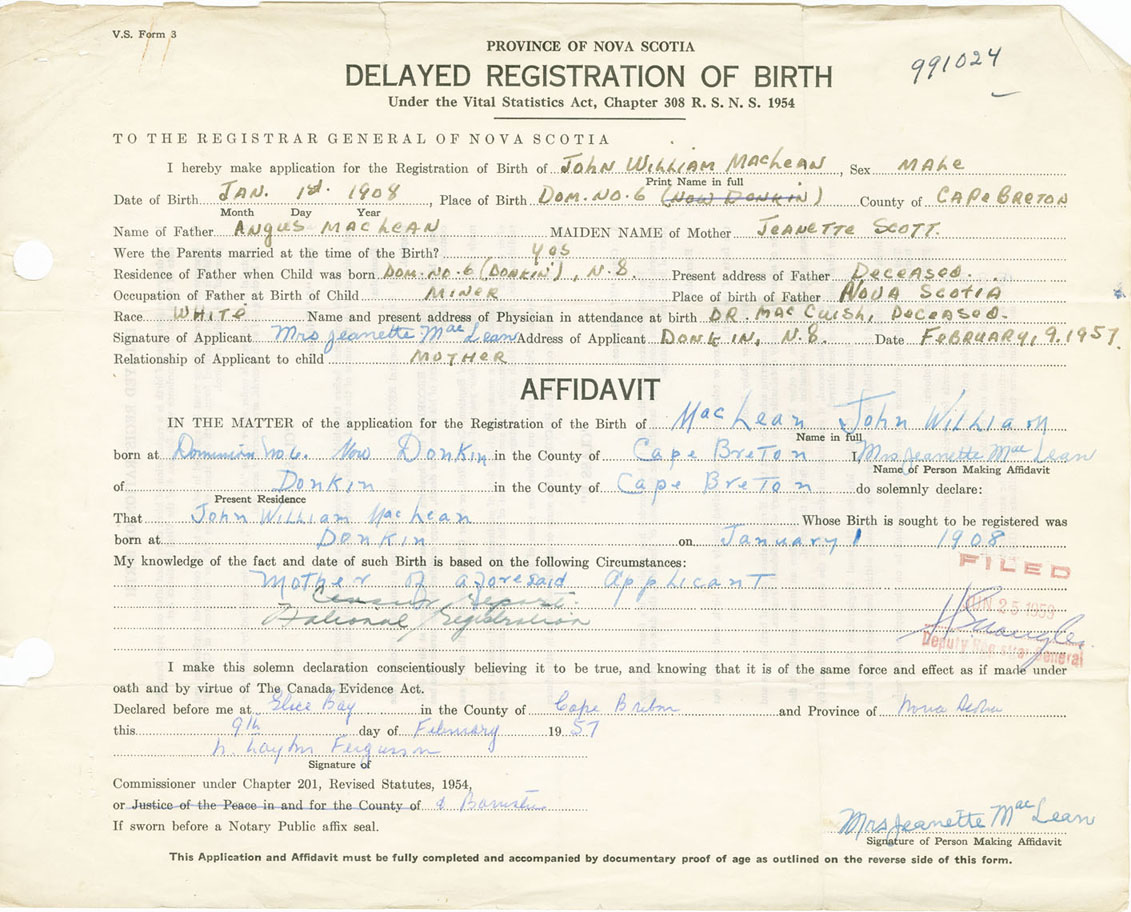 V.S. Form 3
PROVINCE OF NOVA SCOTIA
991024
DELAYED REGISTRATION OF BIRTH
Under the Vital Statistics Act, Chapter 308 R. S. N. S. 1954
TO THE REGISTRAR GENERAL OF NOVA SCOTIA
I hereby make application for the Registration of Birth of John William MacLean, Sex Male
Print Name in full
Date of Birth Jan. 1st. 1908, Place of Birth Dom. No. 6 (Now Donkin) County of Cape Breton
Month Day Year
Name of Father Angus MacLean MAIDEN NAME of Mother Jeanette Scott.
Were the Parents married at the time of the Birth? Yes
Residence of Father when Child was born Dom. No. 6 (Donkin), N.S. Present address of Father Deceased.
Occupation of Father at Birth of Child Miner Place of birth of Father Nova Scotia
Race White Name and present address of Physician in attendance at birth Dr. MacCuish, Deceased.
Signature of Applicant Mrs Jeanette MacLean Address of Applicant Donkin, N.S. Date February, 9. 1957.
Relationship of Applicant to child Mother
AFFIDAVIT
IN THE MATTER of the application for the Registration of the Birth of MacLean John William
Name in full
born at Dominion No 6. Now Donkin in the County of Cape Breton I, Mrs Jeanette MacLean
Name of Person Making Affidavit
of Donkin in the County of Cape Breton do solemnly declare:
Present Residence
That John William MacLean Whose Birth is sought to be registered was
born at Donkin on January 1 1908
My knowledge of the fact and date of such Birth is based on the following Circumstances:
FILED
Mother of aforesaid applicant
Census report.
National Registration
JUN 25 1959
Deputy Registrar General
I make this solemn declaration conscientiously believing it to be true, and knowing that it is of the same force and effect as if made under
oath and by virtue of The Canada Evidence Act.
Declared before me at Glace Bay in the County of Cape Breton and Province of Nova Scotia
this 9th day of February 1957
N. Layton Fergusson
Signature of
Commissioner under Chapter 201, Revised Statutes, 1954,
or Justice of the Peace in and for the County of a Barrister
If sworn before a Notary Public affix seal.
Mrs Jeanette MacLean
Signature of Person Making Affidavit
This Application and Affidavit must be fully completed and accompanied by documentary proof of age as outlined on the reverse side of this form.